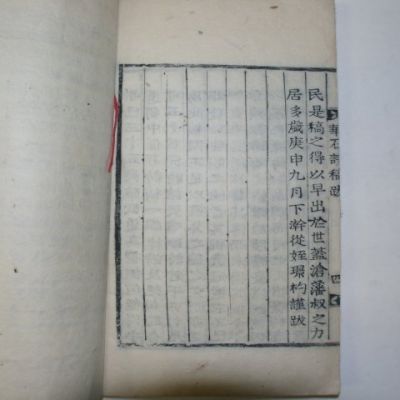 華石詩稿跋
四
民是稿之得以早出於世蓋滄藩叔之力
居多歲庚申九月下澣從姪璟杓謹跋